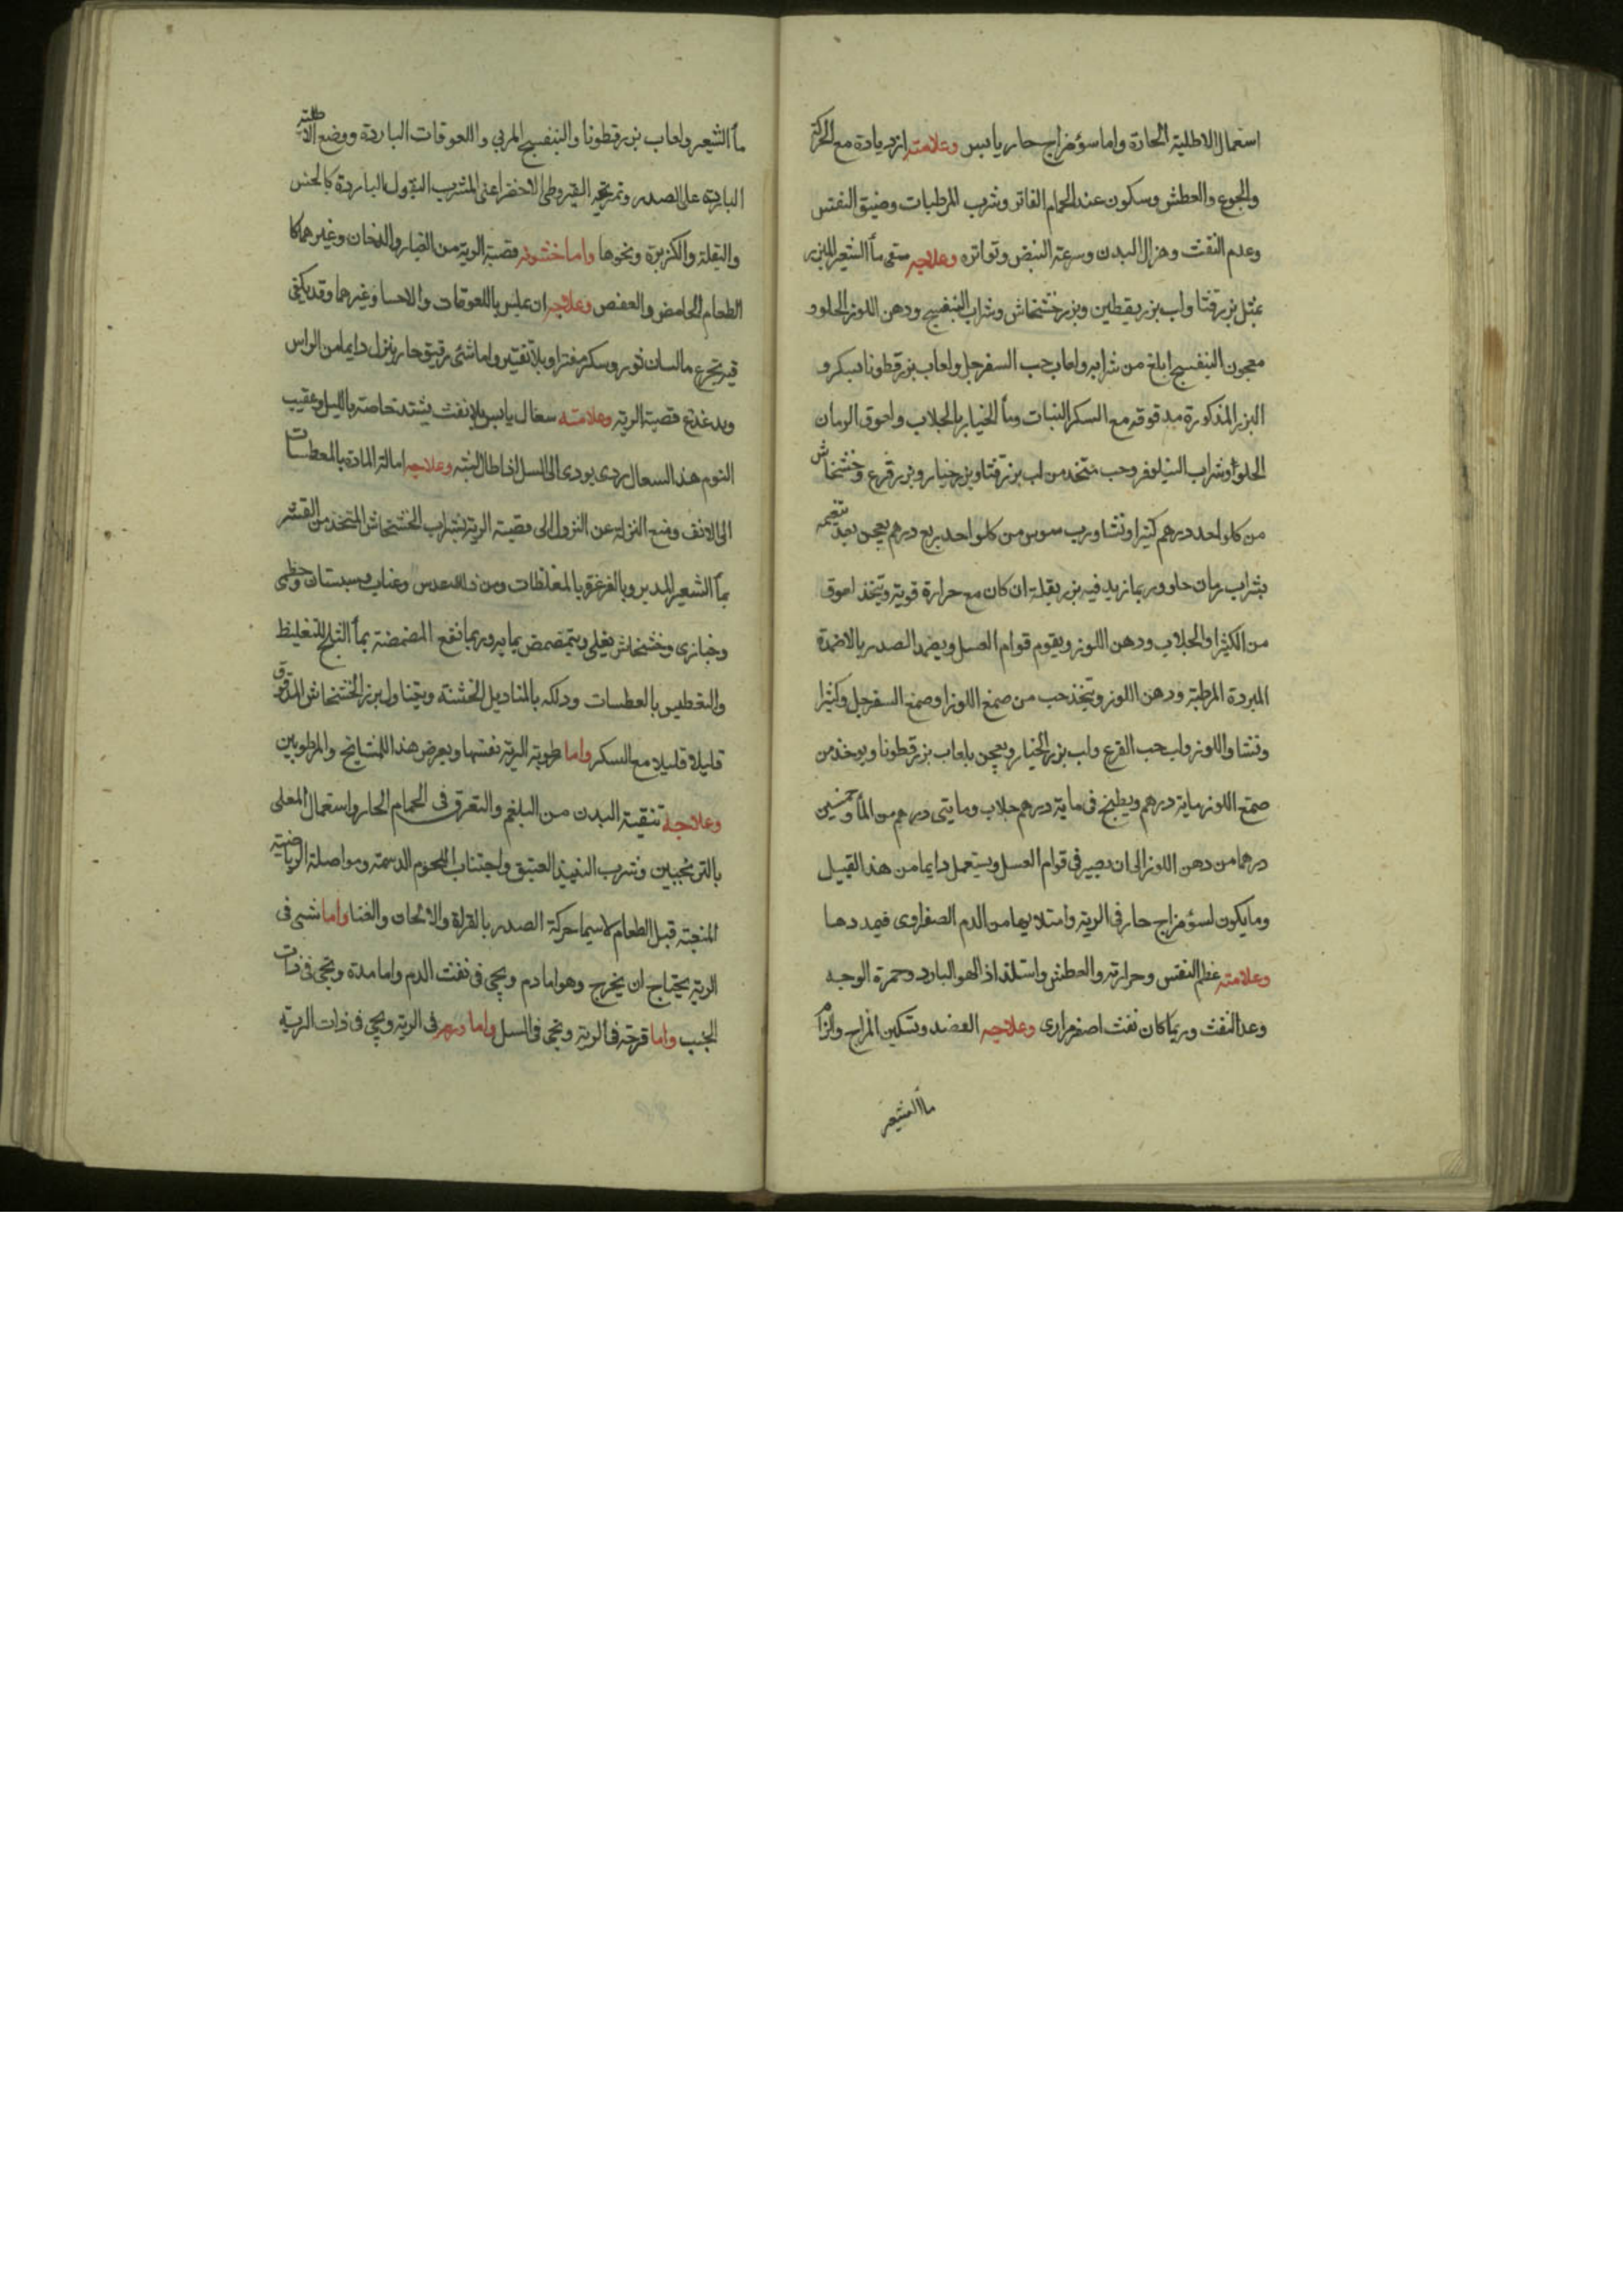 استعمال الاطلية الحادة واما سوٴ مزاج حار يابس وعلامته ازدياده مع الحركة
والجوع والعطش وسكون عند الحمام الفاتر وشرب المرطبات وضيق النفس
وعدم النفث وهزال البدن وسرعة النبض وتواتره وعلاجه سقى مأ الشعير المبزر
بمثل بزر قثا ولب بزر يقطين وبزر خشخاش وشراب البنفسج ودهن اللوز الحلو و
معجون البنفسج ابلغ من شرابه ولعاب حب السفرجل ولعاب بزر قطونا بسكر و
البزر المذكورة مدقوقه مع السكر النبات ومأ الخيار بالجلاب ولعوق الرمان
الحلو او شراب النيلوفر وحب متخذ من لب بزر قثا وبزر خيار وبزر قرع وخشخاش
من كل واحد درهم كثيرا ونشا ورب سوس من كل واحد ربع درهم يعجن بعد
بشراب رمان حلو وربما زيد فيه بزر بقلة ان كان مع حرارة قوية ويتخذ لعوق
من الكثيرا والجلاب ودهن اللوز ويقوم قوام العسل ويضمد الصدر بالاضمدة
المبردة المرطبة ودهن اللوز ويتخذ حب من صمغ اللوز او صمغ السفرجل وكثيرا
ونشا واللوز ولب حب القرع ولب بزر الخيار ويعجن بلعاب بزر قطونا ويوخذ من
صمغ اللوز ماية درهم ويطبخ فى ماية درهم جلاب ومايتى درهم من المأ وخمسين
درهما من دهن اللوز الى ان يصير فى قوام العسل ويستعمل دايما من هذا القبيل
وما يكون لسوٴ مزاج حار فى الرية وامتلايها من الدم الصفراوى فيمددها
وعلامته عظم النفس وحرارته والعطش واستلذاذ الهوا البارد وحمرة الوجه
وعدا النفث وربما كان نفث اصفر مرارى وعلاجه الفصد وتسكين المزاج والزام
مأ الشعير
مأ الشعير ولعاب بزر قطونا والبنفسج المربي واللعوقات الباردة ووضع الاطلية
الباردة على الصدر وتمريخه القيروطى الاخضر اعنى المشرب البقول الباردة كالخس
والبقلة والكزبرة ونحوها واما خشونة قصبة الرية من الغبار والدخان وغيرهما كا
الطعام الحامض والعفص وعلاجه ان علس باللعوقات والاحسا وغيرهما وقد يكفى
فيه تجرع مالسان ثور وسكر مفترا وبلا تفتير واما شئ رقيق حار ينزل دايما من الراس
ويدغدغ قصبة الرية وعلامته سعال يابس بلا نفث يشتد خاصة بالليل وعقيب
النوم هذا السعال ردى يودى الى السل اذا طال البته وعلاجه امالة المادة بالمعطسات
الى الانف ومنع النزلة عن النزول الى قصبة الرية بشراب الخشخاش المتخذ من القشر
بمأ الشعير المدبر وبالغرغرة بالمغلظات ومن ذلك عدس وعناب وسبستان وخطمى
وخبازى وخشخاش يغلى ويتمضمض بمايه وربما نفع المضمضة بمأ الثلج للتغليظ
والتعطيس بالعطسات ودلكه بالمناديل الخشنة ويتناول بزر الخشخاش المدقوق
قليلا قليلا مع السكر واما رطوبة الرية نفسها ويعرض هذا للمشايخ والمرطوبين
وعلاجه تنقية البدن من البلغم والتعرق فى الحمام الحار واستعمال المعلى
بالترنجبين وشرب النبيذ العتيق واجتناب اللحوم الدسمة ومواصلة الرياضية
المتعبة قبل الطعام لا سيما حركة الصدر بالقراة والالحان والغنا واما شى فى
الرية يحتاج ان يخرج وهو اما دم ويجى فى نفث الدم واما مدة ويجى فى ذات
الجنب واما قرحة فى الرية ويجى فى السل واما ورم فى الرية ويجى فى ذات الرية